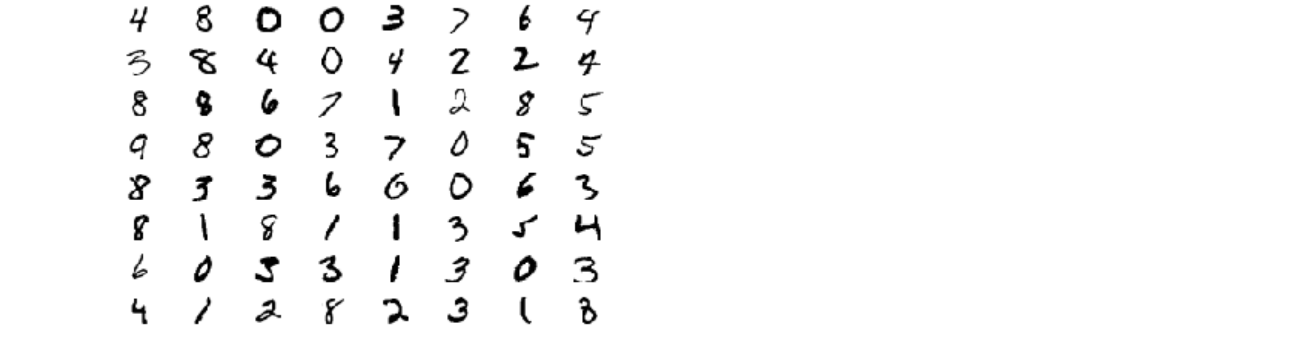 4 8 0 0 3 7 6 4
3 8 4 0 4 2 2 4
8 8 6 7 1 2 8 5
9 8 0 3 7 0 5 5
8 3 3 6 6 0 6 3
8 1 8 1 1 3 5 4
6 0 5 3 1 3 0 3
4 1 2 8 2 3 1 8